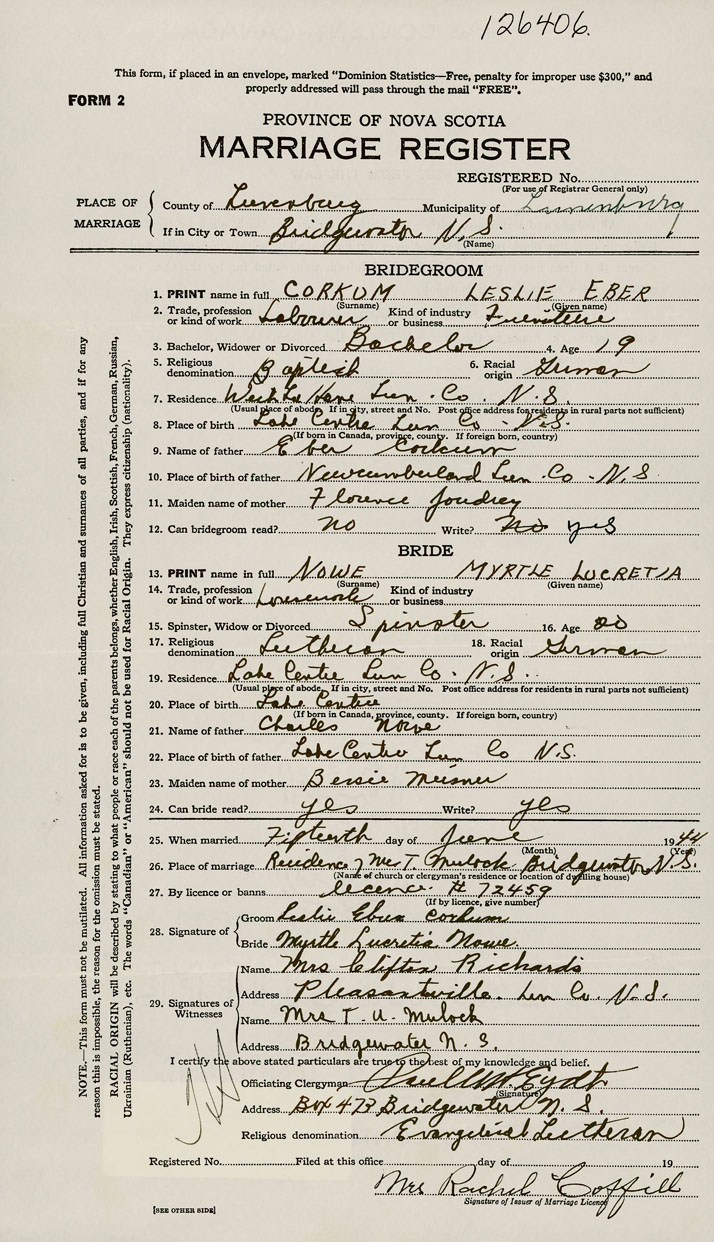 126406.
This form, if placed in an envelope, marked "Dominion Statistics—Free, penalty for improper use $300," and
properly addressed will pass through the mail "FREE".
FORM 2
PROVINCE OF NOVA SCOTIA
MARRIAGE REGISTER
REGISTERED No.
(For use of Registrar General only)
PLACE OF MARRIAGE
County of Lunenburg Municipality of Lunenburg
If in City or Town Bridgewater N.S.
(Name)
BRIDEGROOM
1. PRINT name in full CORKUM LESLIE EBER
(Surname) (Given name)
2. Trade, profession or kind of work Labourer Kind of industry or business Furniture
3. Bachelor, Widower or Divorced Bachelor 4. Age 19
5. Religious denomination Baptist 6. Racial origin German
7. Residence West La Have Lun. Co. N.S.
(Usual place of abode. If in city, street and No. Post office address for residents in rural parts not sufficient)
8. Place of birth Lake Centre Lun Co - N.S.
(If born in Canada, province, county. If foreign born, country)
9. Name of father Eber Corkum
10. Place of birth of father Newcumberland Lun. Co - N.S
11. Maiden name of mother Florence Joudrey
12. Can bridegroom read? no Write? no yes
BRIDE
13. PRINT name in full NOWE MYRTLE LUCRETIA
(Surname) (Given name)
14. Trade, profession or kind of work Housework Kind of industry or business
15. Spinster, Widow or Divorced Spinster 16. Age 20
17. Religious denomination Lutheran 18. Racial origin German
19. Residence Lake Centre Lun Co. N.S.
(Usual place of abode. If in city, street and No. Post office address for residents in rural parts not sufficient)
20. Place of birth Lake Centre
(If born in Canada, province, county. If foreign born, country)
21. Name of father Charles Nowe
22. Place of birth of father Lake Centre Lun Co N.S.
23. Maiden name of mother Bessie Meisner
24. Can bride read? yes Write? yes
25. When married Fifteenth day of June 1944
(Month) (Year)
26. Place of marriage Residence of Mrs T. Mulock Bridgewater N.S.
(Name of church or clergyman's residence or location of dwelling house)
27. By licence or banns licence # 72459
(If by licence, give number)
28. Signature of
Groom Leslie Eber Corkum
Bride Myrtle Lucretia Nowe.
29. Signatures of Witnesses
Name Mrs Clifton Richards
Address Pleasantville. Lun Co. N.S.
Name Mrs T. U. Mulock
Address Bridgewater N. S.
I certify the above stated particulars are true to the best of my knowledge and belief.
Officiating Clergyman
(Signature)
Address Box 473 Bridgewater N. S.
Religious denomination Evangelical Lutheran
Registered No. Filed at this office day of 19
Mrs Rachel Coffill
Signature of Issuer of Marriage Licence
[SEE OTHER SIDE]
NOTE.—This form must not be mutilated. All information asked for is to be given, including full Christian and surnames of all parties, and if for any
reason this is impossible, the reason for the omission must be stated.
RACIAL ORIGIN will be described by stating to what people or race each of the parents belongs, whether English, Irish, Scottish, French, German, Russian,
Ukrainian (Ruthenian), etc. The words "Canadian" or "American" should not be used for Racial Origin. They express citizenship (nationality).